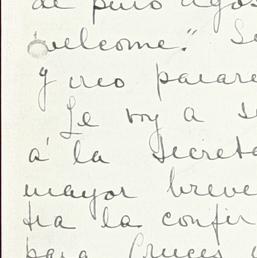 de puño agos
welcome." Se
y creo parare
Le voy a
á la Secreta
mayor breve
tra la confir
para Cruces